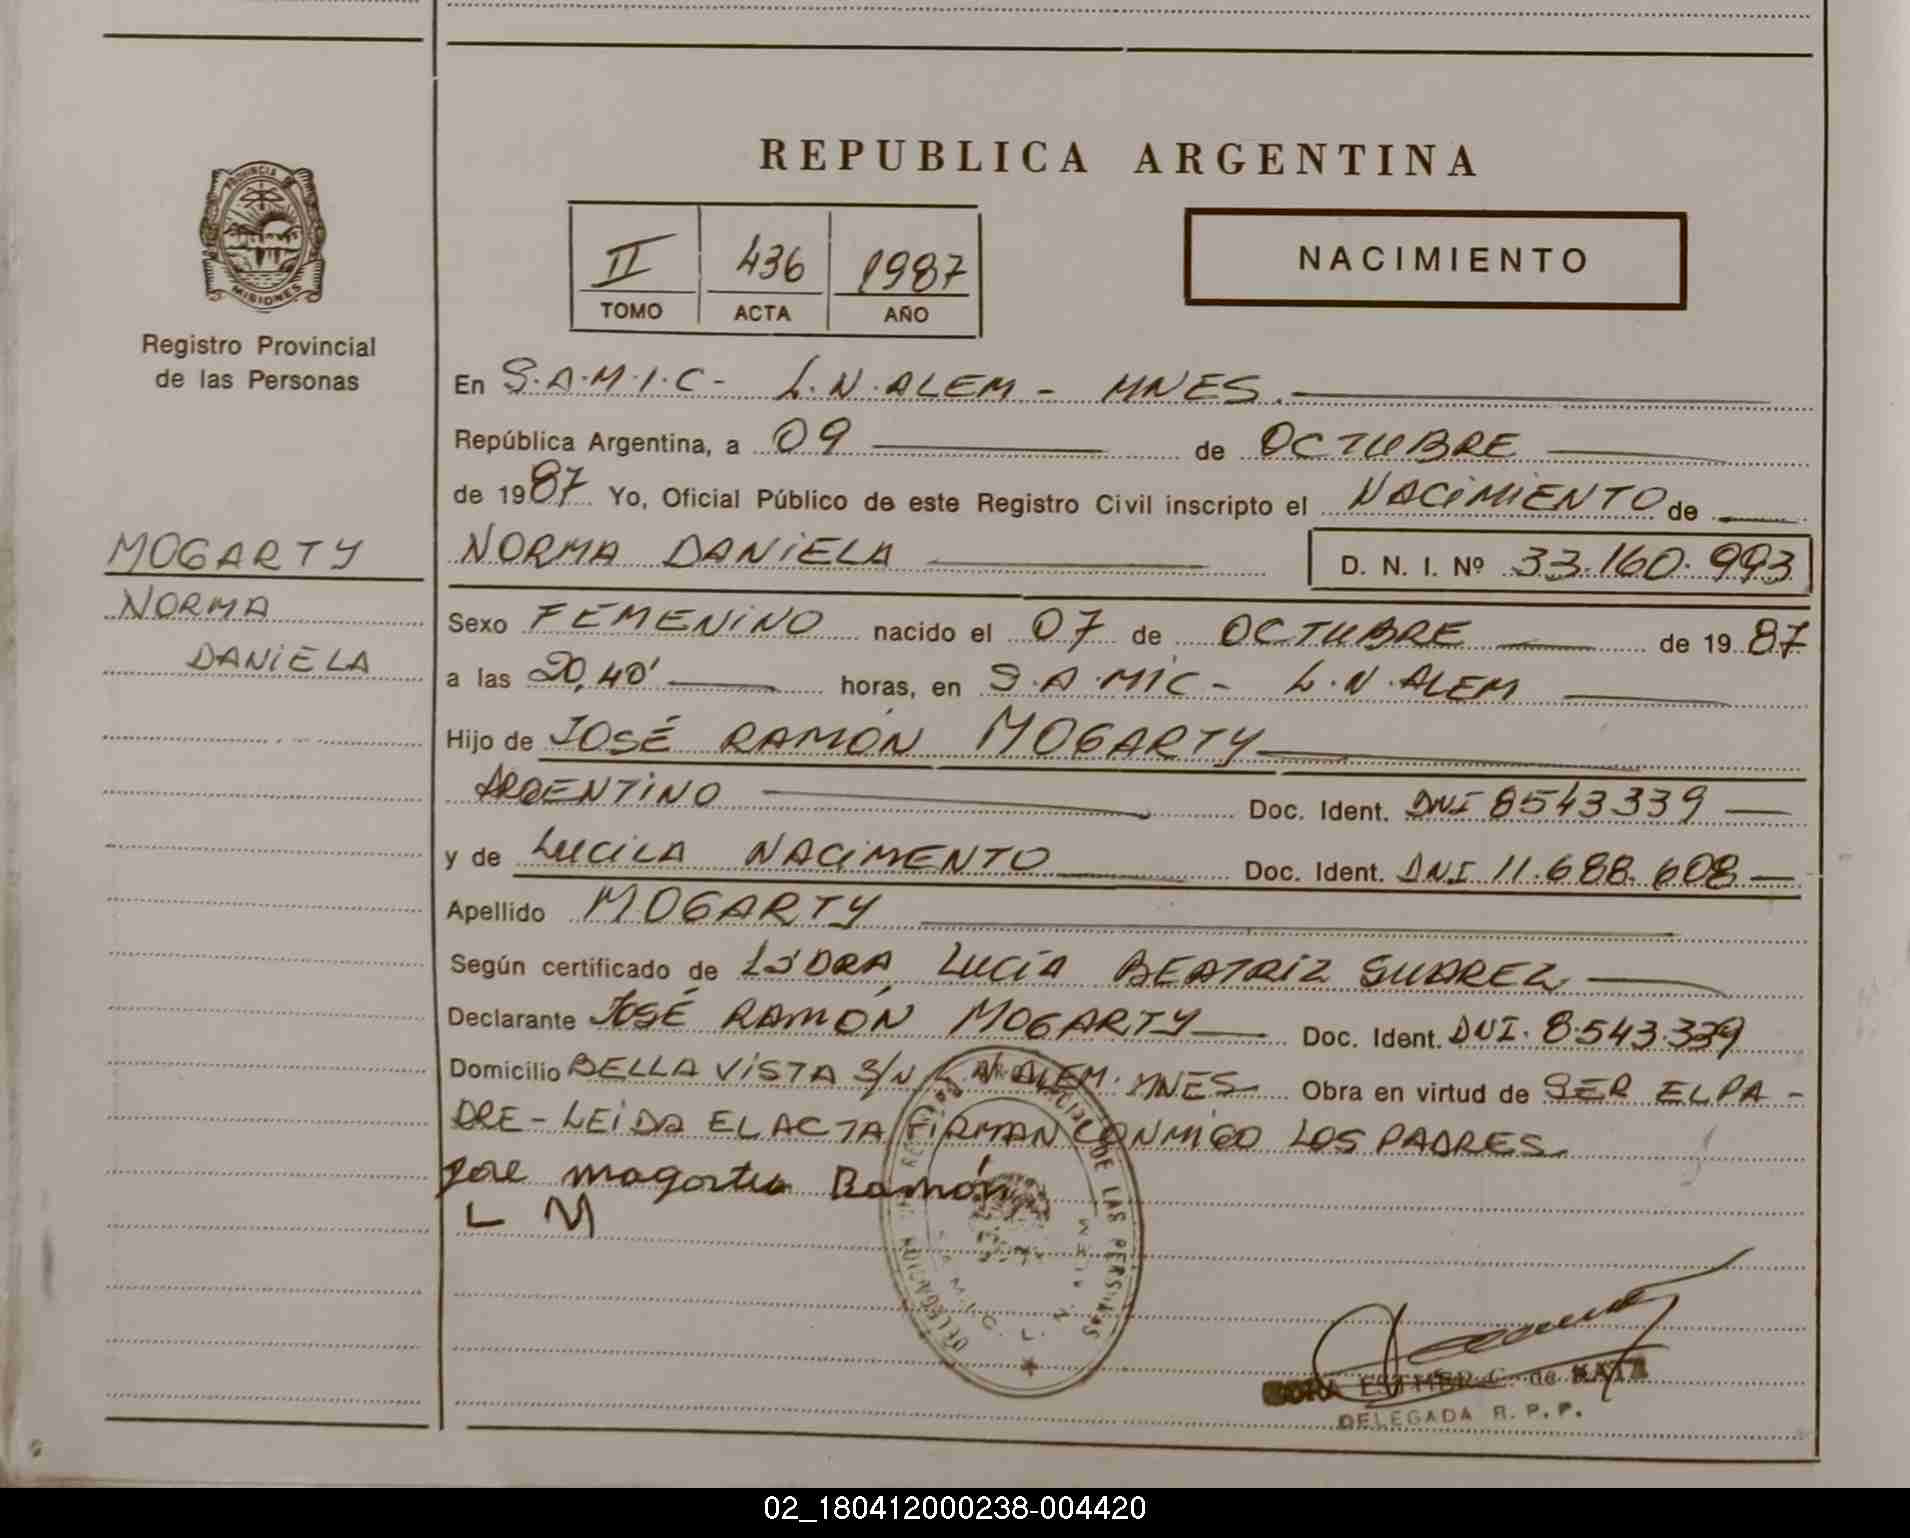 REPUBLICA ARGENTINA
PROVINCIA DE
MISIONES
Registro Provincial
de las Personas
II 436 1987
TOMO ACTA AÑO
NACIMIENTO
En S.A.M.I.C- L.N.ALEM - MNES.
República Argentina, a 09 de OCTUBRE
de 1987 Yo, Oficial Público de este Registro Civil inscripto el NACIMIENTO de
MOGARTY
NORMA
DANIELA
NORMA DANIELA D. N. I. Nº 33.160.993
Sexo FEMENINO nacido el 07 de OCTUBRE de 1987
a las 20,40' horas, en S.A.MIC- L.N.ALEM
Hijo de JOSÉ RAMÓN MOGARTY
ARGENTINO Doc. Ident. DNI 8543339
y de LUCILA NACIMENTO Doc. Ident. DNI 11.688.608
Apellido MOGARTY
Según certificado de LUCÍA BEATRIZ SUAREZ
Declarante JOSÉ RAMÓN MOGARTY Doc. Ident. DNI. 8.543.339
Domicilio BELLA VISTA S/N L.N ALEM. MNES Obra en virtud de SER EL PA-
DRE - LEIDA EL ACTA FIRMAN CONMIGO LOS PADRES
Jose Ramón
L M
DE LAS PERSONAS
DELEGACION
ESTHER C. de
DELEGADA R. P. P.
02_180412000238-004420